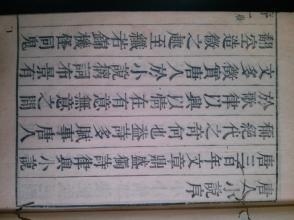 唐人小說序
唐三百年文章鼎盛獨詩律與小說
稱絕代之奇何也蓋詩多賦事唐人
於歌律以興以情在有意無意之間
文多徵實唐人於小說摛詞布景有
翻空造微之趣至纖若錦機怪同鬼